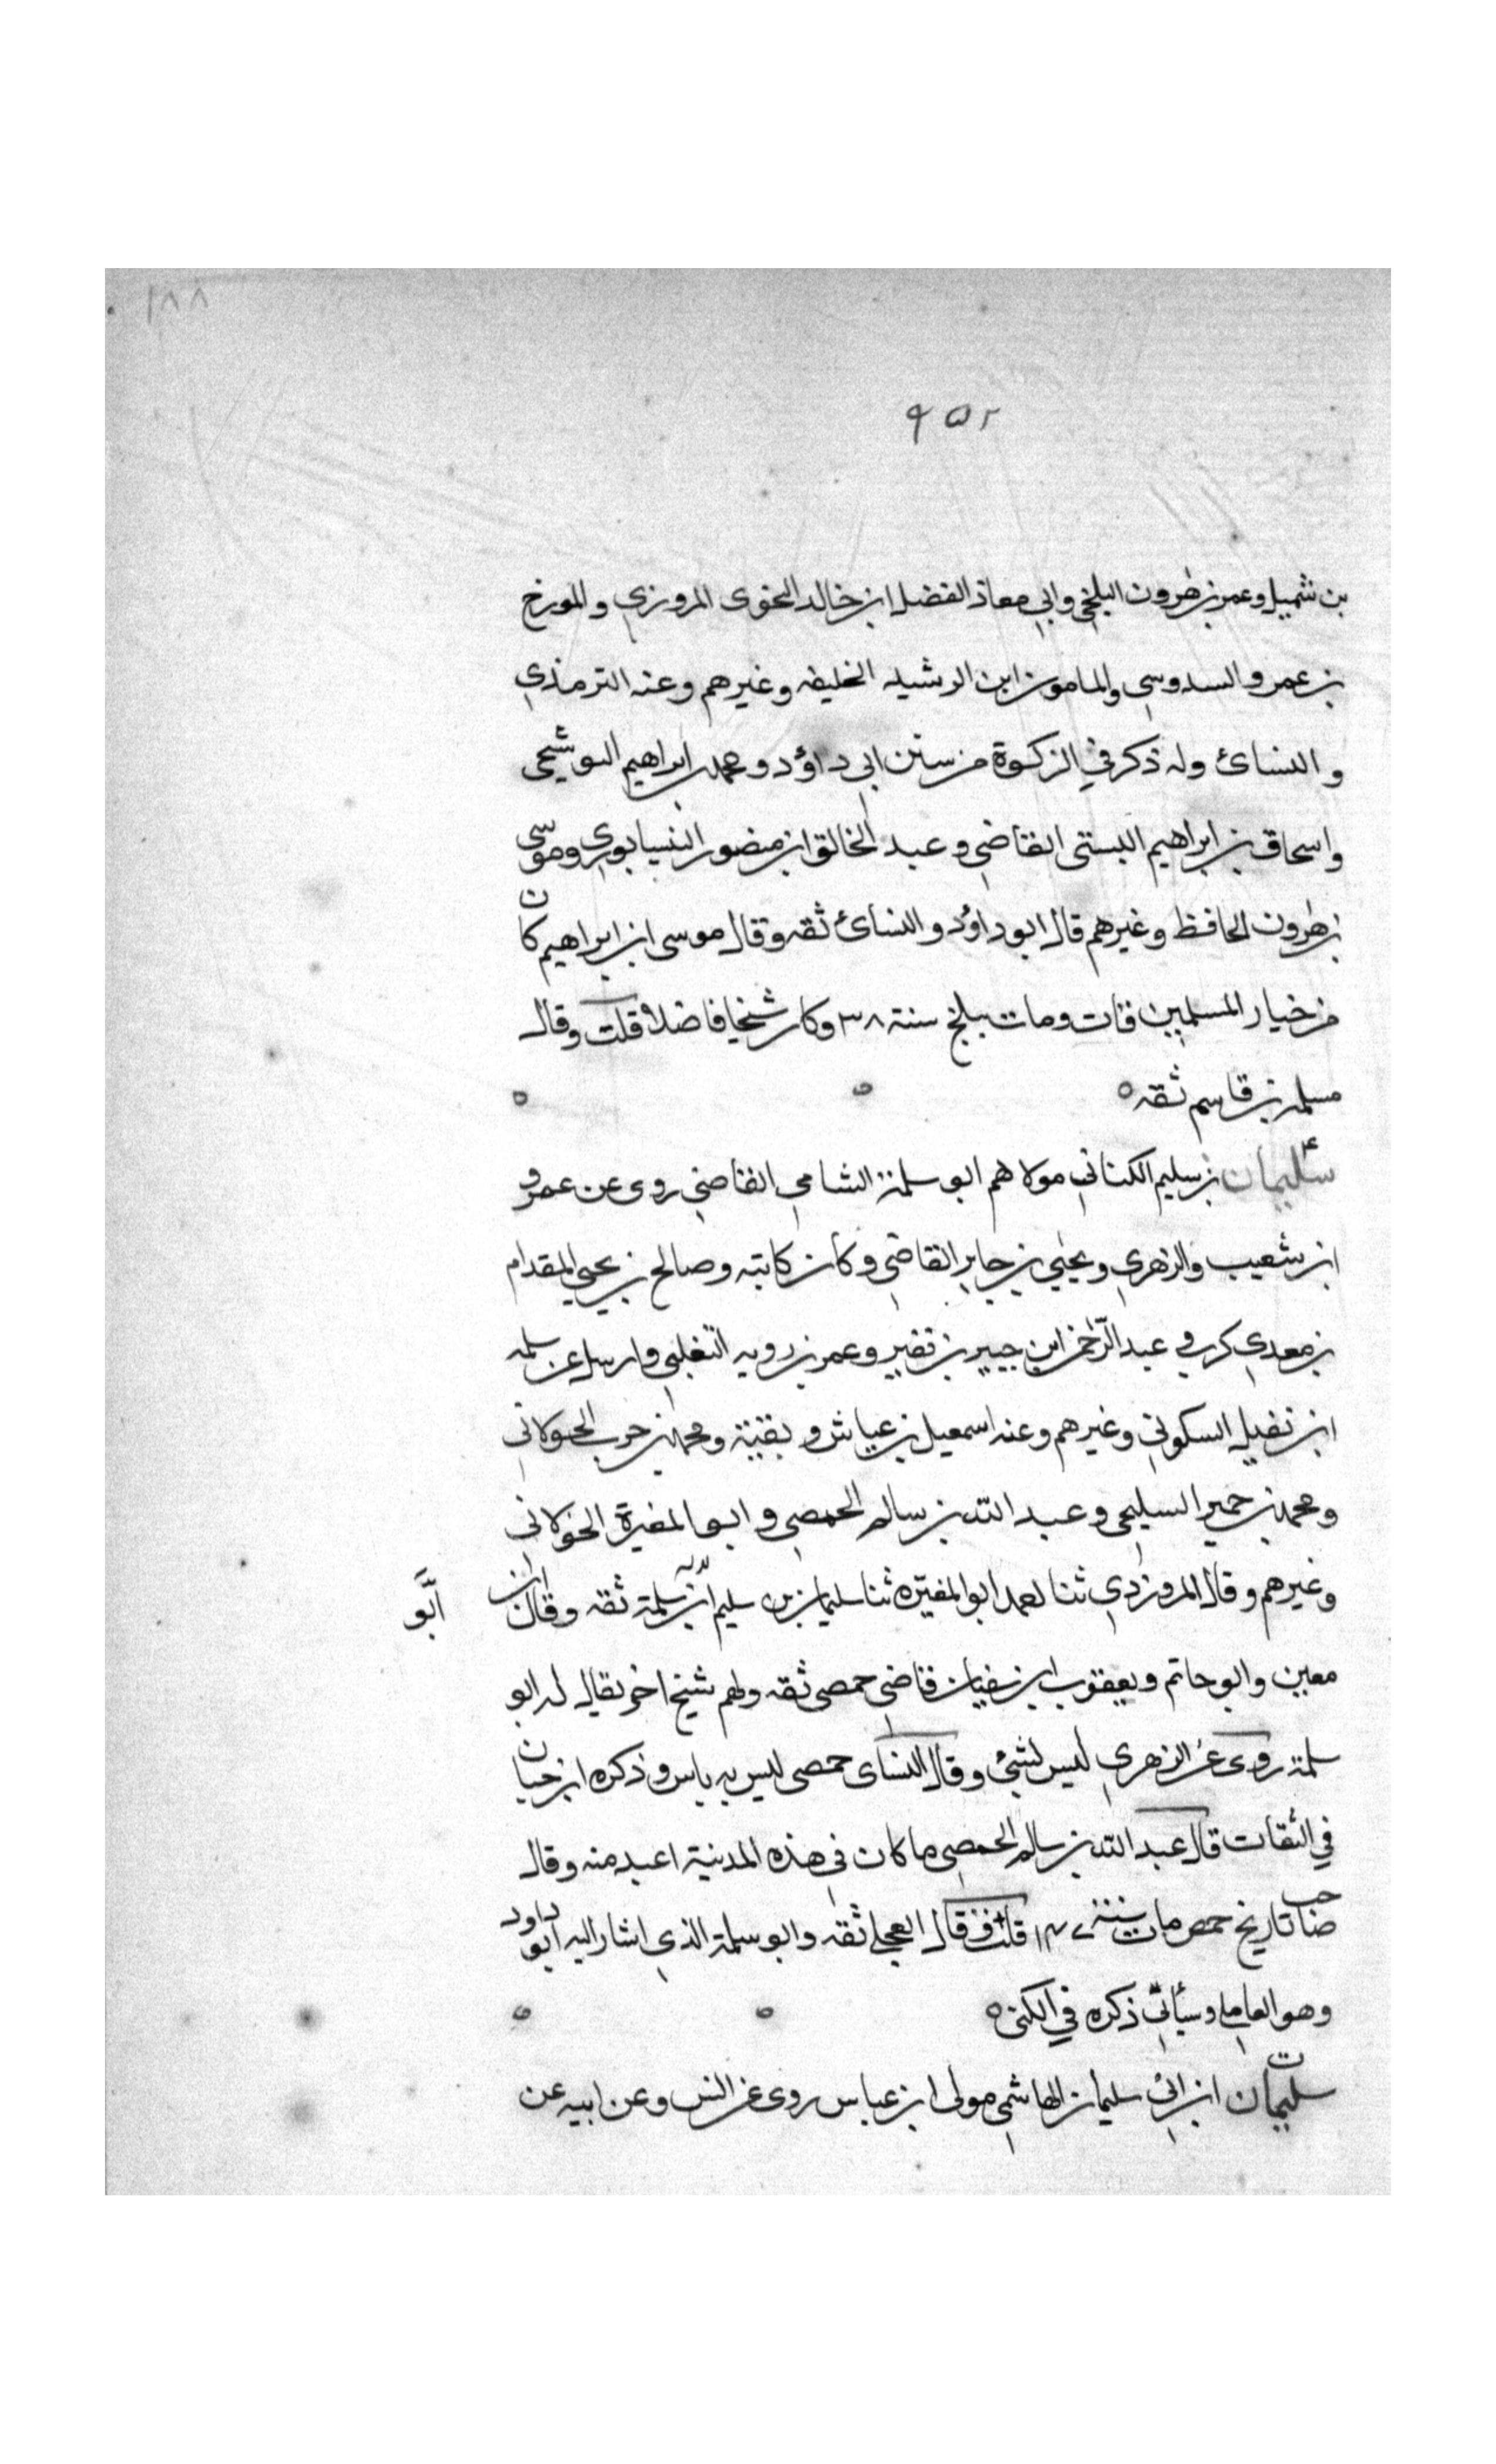 ١٨٨
٩٥٢
بن شميل وعمر بن هرون البلخي وابي معاذ الفضل ابن خالد النحوى المروزي والمورخ
بن عمرو السدوسي والمامون ابن الرشيد الخليفه وغيرهم وعنه الترمذي
و النسائ وله ذكر في الزكوة من سنن ابي داؤد ومحمد بن ابراهيم البوشيحى
واسحاق بن ابراهيم البستى القاضي وعبد الخالق ابن منصور النيسابوري وموسى
بن هرون الحافظ وغيرهم قال ابو داؤد والنسائ ثقه وقال موسى ابن ابراهيم كان
من خيار المسلمين قات ومات ببلخ سنة ٣٨ وكان شيخا فاضلا قلت وقال
مسلمه بن قاسم ثقه ه
سليمان بن سليم الكناني مولاهم ابو سلمة الشامي القاضي روى عن عمرو
ابن شعيب والزهري ويحيى بن جابر القاضي وكان كاتبه وصالح بن يحيى المقدام
بن معدي كرب و عبد الرحمن ابن جبير بن نفير وعمر بن رويه التغلبي وارسل عن سلمه
ابن نفيل السكوني وغيرهم وعنه اسمعيل بن عياش و بقية ومحمد بن حرب الخولاني
ومحمد بن حمير السليحى وعبد الله بن سالم الحمصي و ابو المغيرة الخولاني
وغيرهم وقال المروزدي ثنا لعمد ابو المغيره ثنا سليمان بن سليم ابن سلمة ثقه وقال ابن
ابو
معين وابو حاتم ويعقوب ابن سفيان قاضي حمصى ثقه ولهم شيخ اخر يقال له ابو
سلمة روى عن الزهري ليس لشئ وقال النساى حمصى ليس به باس وذكره ابن حبان
في الثقات قال عبد الله بن سالم الحمصي ما كان في هذه المدينة اعبد منه وقال
صاحب تاريخ حمص مات سنة ١٤٧ قلت قال العجلي ثقه وابو سلمة الذي اشار اليه ابو داود
وهو العاملي وسيأتي ذكره في الكنى ه
سليمان ابن ابي سليمان الهاشمي مولى ابن عباس روى عن انس وعن ابيه عن